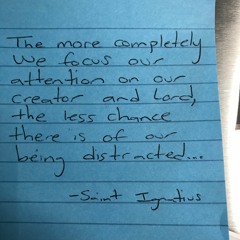 The more completely
we focus our
attention on our
creator and Lord,
the less chance
there is of our
being distracted...
-Saint Ignatius